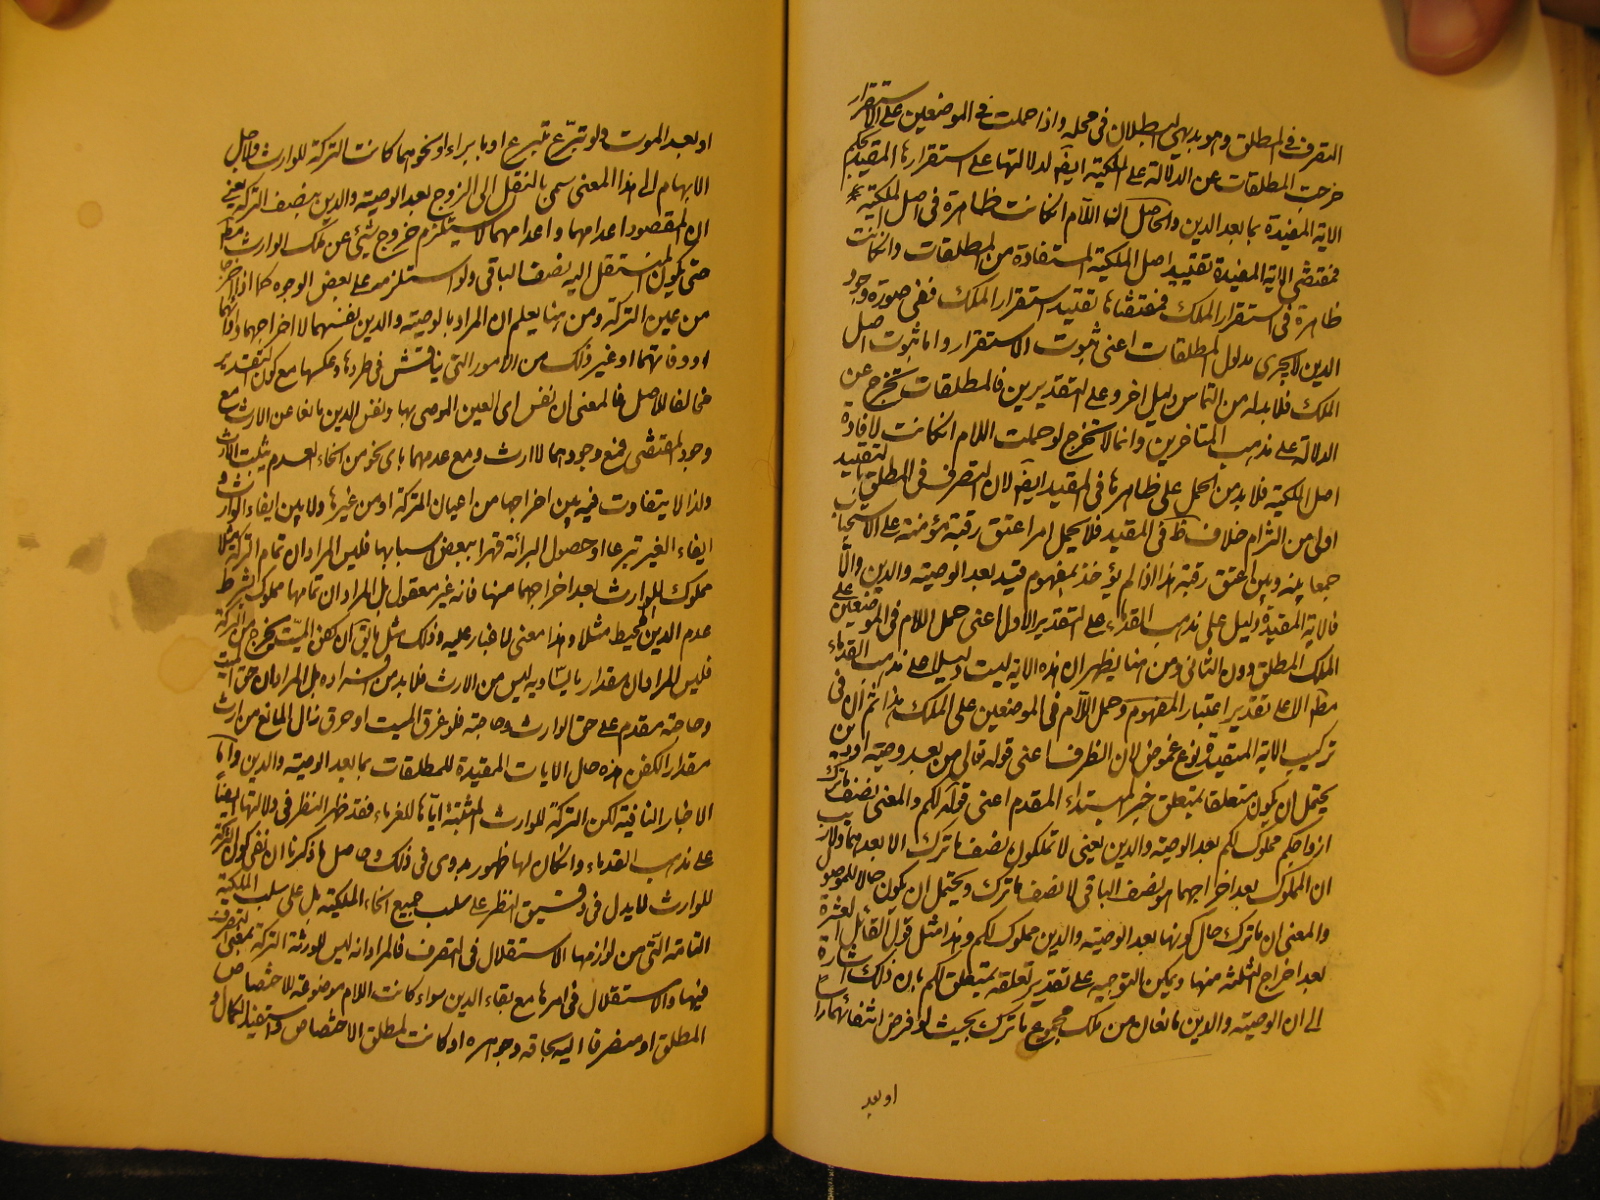 التصرف في المطلق وهو بديهي البطلان في محله واذا حملت في الموضعين على الاستقرار
خرجت المطلقات عن الدلالة على الملكية ايضا لدلالتها على استقرارها المقيد بحكم
الاية المقيدة بما بعد الدين والحاصل ان اللام ان كانت ظاهرة في اصل الملكية
فمقتضى الاية المقيدة تقييد اصل الملكية المستفادة من المطلقات وان كانت
ظاهرة في استقرار الملك فمقتضاها تقييد استقرار الملك ففي صورة وجود
الدين لا يجرى مدلول المطلقات اعنى ثبوت الاستقرار واما ثبوت اصل
الملك فلا بد له من التماس دليل اخر وعلى التقديرين فالمطلقات تخرج عن
الدلالة على مذهب المتاخرين وانما لا تخرج لو حملت اللام ان كانت لافادة
اصل الملكية فلا بد من الحمل على ظاهرها في المقيد ايضا لان التصرف في المطلق بالتقييد
اولى من التزام خلاف ظ في المقيد فلا يحمل امر اعتق رقبة مؤمنة على الاستحباب
جمعا بينه وبين اعتق رقبة هذا اذا لم يؤخذ بمفهوم قيد بعد الوصية والدين والا
فالاية المقيدة دليل على مذهب القدماء على التقدير الاول اعنى حمل اللام في الموضعين على
الملك المطلق دون الثانى ومن هنا يظهر ان هذه الاية ليست دليلا على مذهب القدماء
مط الا على تقدير اعتبار المفهوم وحمل اللام في الموضعين على الملك هذا ثم ان في
تركيب الاية المقيدة نوع غموض لان الظرف اعنى قوله تعالى من بعد وصية او دين
يحتمل ان يكون متعلقا بمتعلق خبر المبتداء المقدم اعنى قوله لكم والمعنى نصف ما ترك
ازواجكم مملوك لكم بعد الوصية والدين يعنى لا تملكون نصف ما ترك الا بعدهما ولا ريب
ان المملوك بعد اخراجهما هو نصف الباقى لا نصف ما ترك ويحتمل ان يكون حالا للموصول
والمعنى ان ما ترك حال كونها بعد الوصية والدين مملوك لكم وهذا مثل قول القائل العشرة
بعد اخراج الثلثة منها ويمكن التوجيه على تقدير تعلقه بمتعلق لكم بان ذلك اشارة
الى ان الوصية والدين مانعان من ملك مجموع ما ترك بحيث لو فرض انتفائهما راسا
او بعد
او بعد الموت ولو تبرع متبرع او بابراء او نحوهما كانت التركة للوارث ولاجل
الابهام الى هذا المعنى سمى بالنقل الى الزوج بعد الوصية والدين بنصف التركة يعنى
ان المقصود اعدامهما واعدامهما لا يستلزم خروج شئ عن ملك الوارث مط
حتى يكون المنتقل اليه نصف الباقى ولو استلزمه على بعض الوجوه كما اذا اخرجا
من عين التركة ومن هنا يعلم ان المراد بالوصية والدين نفسهما لا اخراجهما
او وفائهما او غير ذلك من الامور التى يناقش في طردها وعكسها مع كون التقدير
مخالفا للاصل فالمعنى ان نفس اى العين الموصى بها ونفس الدين مانعا عن الارث مع
وجود المقتضى فمع وجودهما لا ارث ومع عدمهما باى نحو من انحاء العدم يثبت الارث
ولذا لا يتفاوت فيه بين اخراجها من اعيان التركة او من غيرها ولا بين ايفاء الوارث و
ايفاء الغير تبرعا او حصول البرائة قهرا ببعض اسبابها فليس المراد ان تمام التركة
مملوك للوارث بعد اخراجهما منها فانه غير معقول بل المراد ان تمامها مملوك بشرط
عدم الدين المحيط مثلا وهذا معنى لا غبار عليه وذلك مثل ما يق ان كفن الميت يخرج من التركة
فليس المراد ان مقدار ما يساويه ليس من الارث فلا بد من افراده بل المراد ان حق الميت
وحاجته مقدم على حق الوارث وحاجته فلو غرق الميت او حرق زال المانع من ارث
مقدار الكفن هذه حال الايات المقيدة للمطلقات بما بعد الوصية والدين واما
الاخبار النافية لكن التركة للوارث المثبتة اياها للغرماء فقد ظهر النظر في دلالتها ايضا
على مذهب القدماء وان كان لها ظهور بدوى في ذلك وحاصل ما ذكرنا ان نفى كون التركة
للوارث لا يدل في دقيق النظر على سلب جميع انحاء الملكية بل على سلب الملكية
التامة التى من لوازمها الاستقلال في التصرف فالمراد انه ليس للورثة التركة بمعنى التصرف
فيها والاستقلال في امرها مع بقاء الدين سواء كانت اللام موضوعة للاختصاص
المطلق او منصرفا اليه بحاقه وجوهره او كانت لمطلق الاختصاص واستفيد الكمال